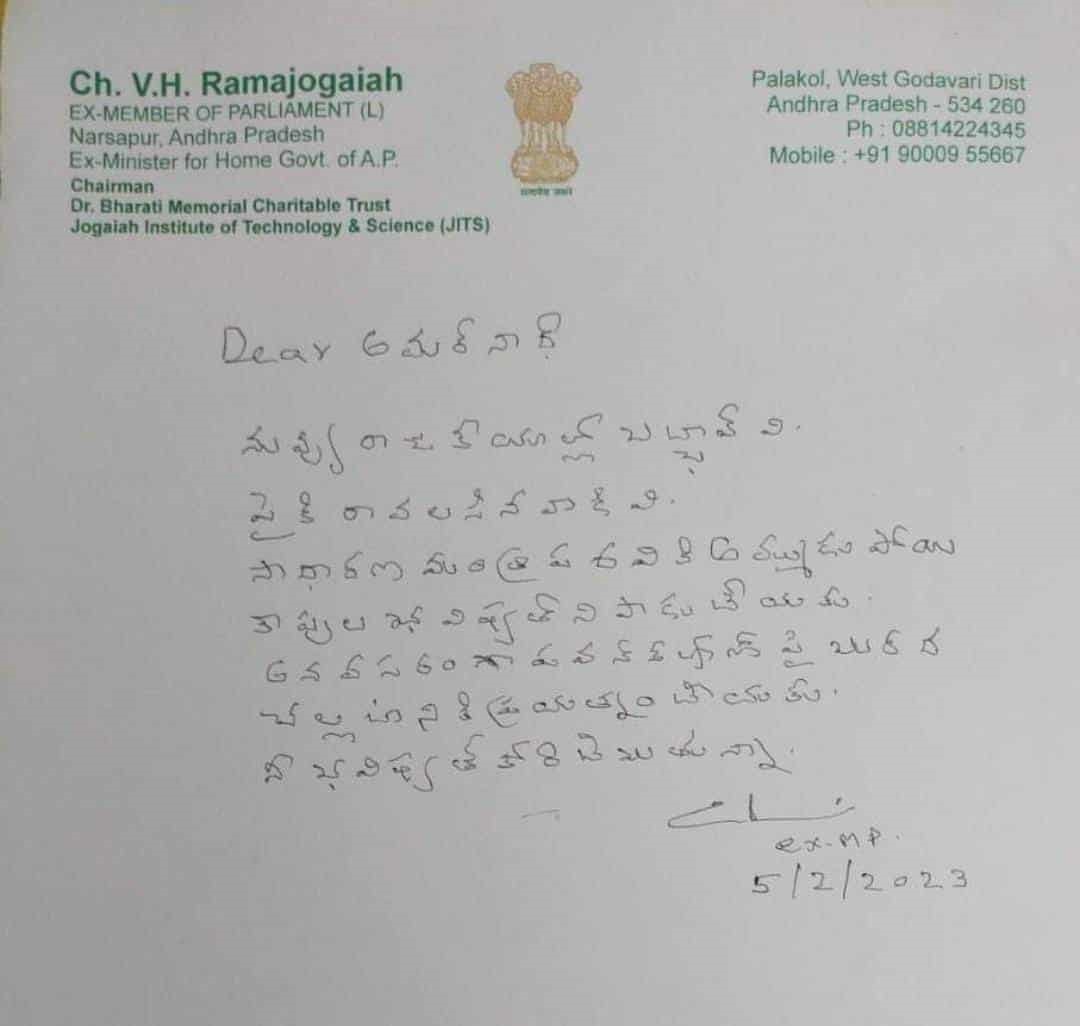 Ch. V.H. Ramajogaiah
EX-MEMBER OF PARLIAMENT (L)
Narsapur, Andhra Pradesh
Ex-Minister for Home Govt. of A.P.
Chairman
Dr. Bharati Memorial Charitable Trust
Jogaiah Institute of Technology & Science (JITS)
सत्यमेव जयते
Palakol, West Godavari Dist
Andhra Pradesh - 534 260
Ph : 08814224345
Mobile : +91 90009 55667
Dear అమర్ నాథ్
నువ్వు రాజకీయాల్లో బచ్చావి.
పైకి రావలసినవాడివి.
సాధారణ మంత్రి పదవికి అమ్ముడుపోయి
కాపుల భవిష్యత్ ని పాడుచేయకు.
అనవసరంగా పవన్ కళ్యాణ్ పై బురద
చల్లటానికి ప్రయత్నం చేయకు.
నీ భవిష్యత్ కోరి చెబుతున్నా.
ex-MP.
5/2/2023